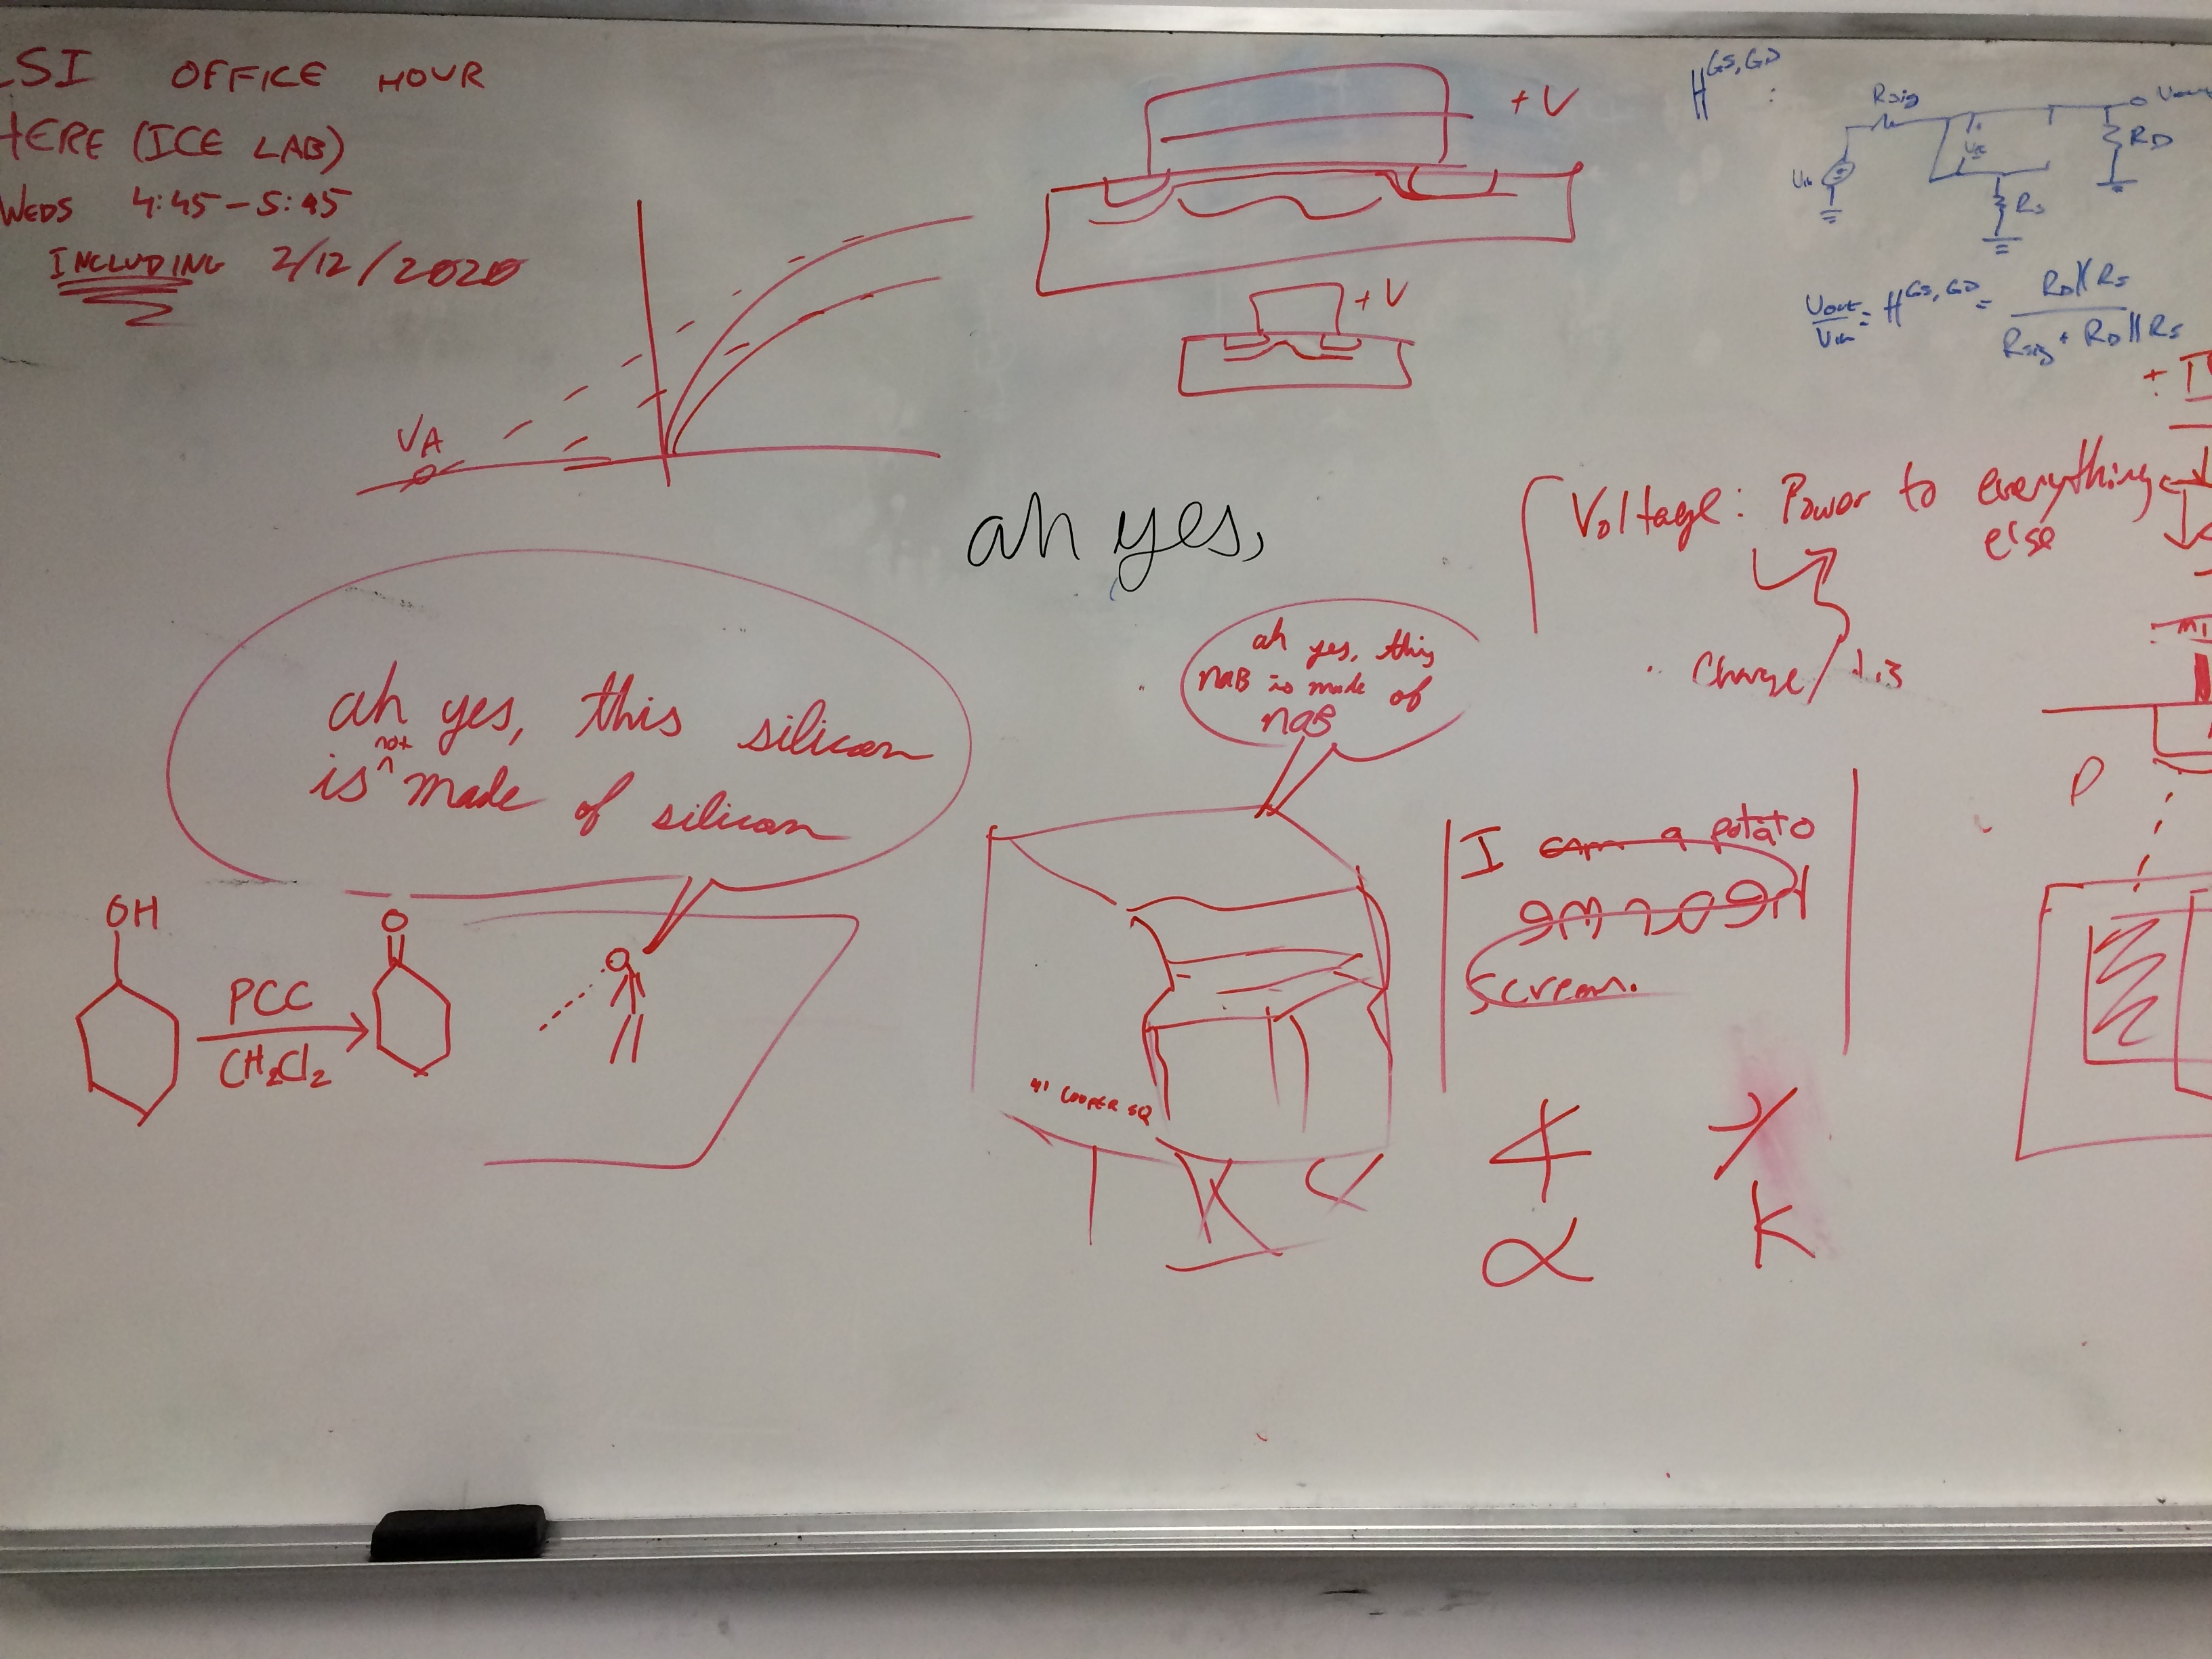 LSI OFFICE HOUR
HERE (ICE LAB)
WEDS 4:45-5:45
INCLUDING 2/12/2020
VA
+V
+V
H^GS,GD :
Rsig
Vout
RD
Vin
Rs
Vout/Vin = H^GS,GD = RD||Rs / Rsig + RD||Rs
ah yes,
Voltage: Power to everything
else
Charge/
ah yes, this silicon
is ^not made of silicon
ah yes, this
NAB is made of
NAB
OH
PCC
CH2Cl2
O
41 COOPER SQ
I am a potato
scream.
P
α
K